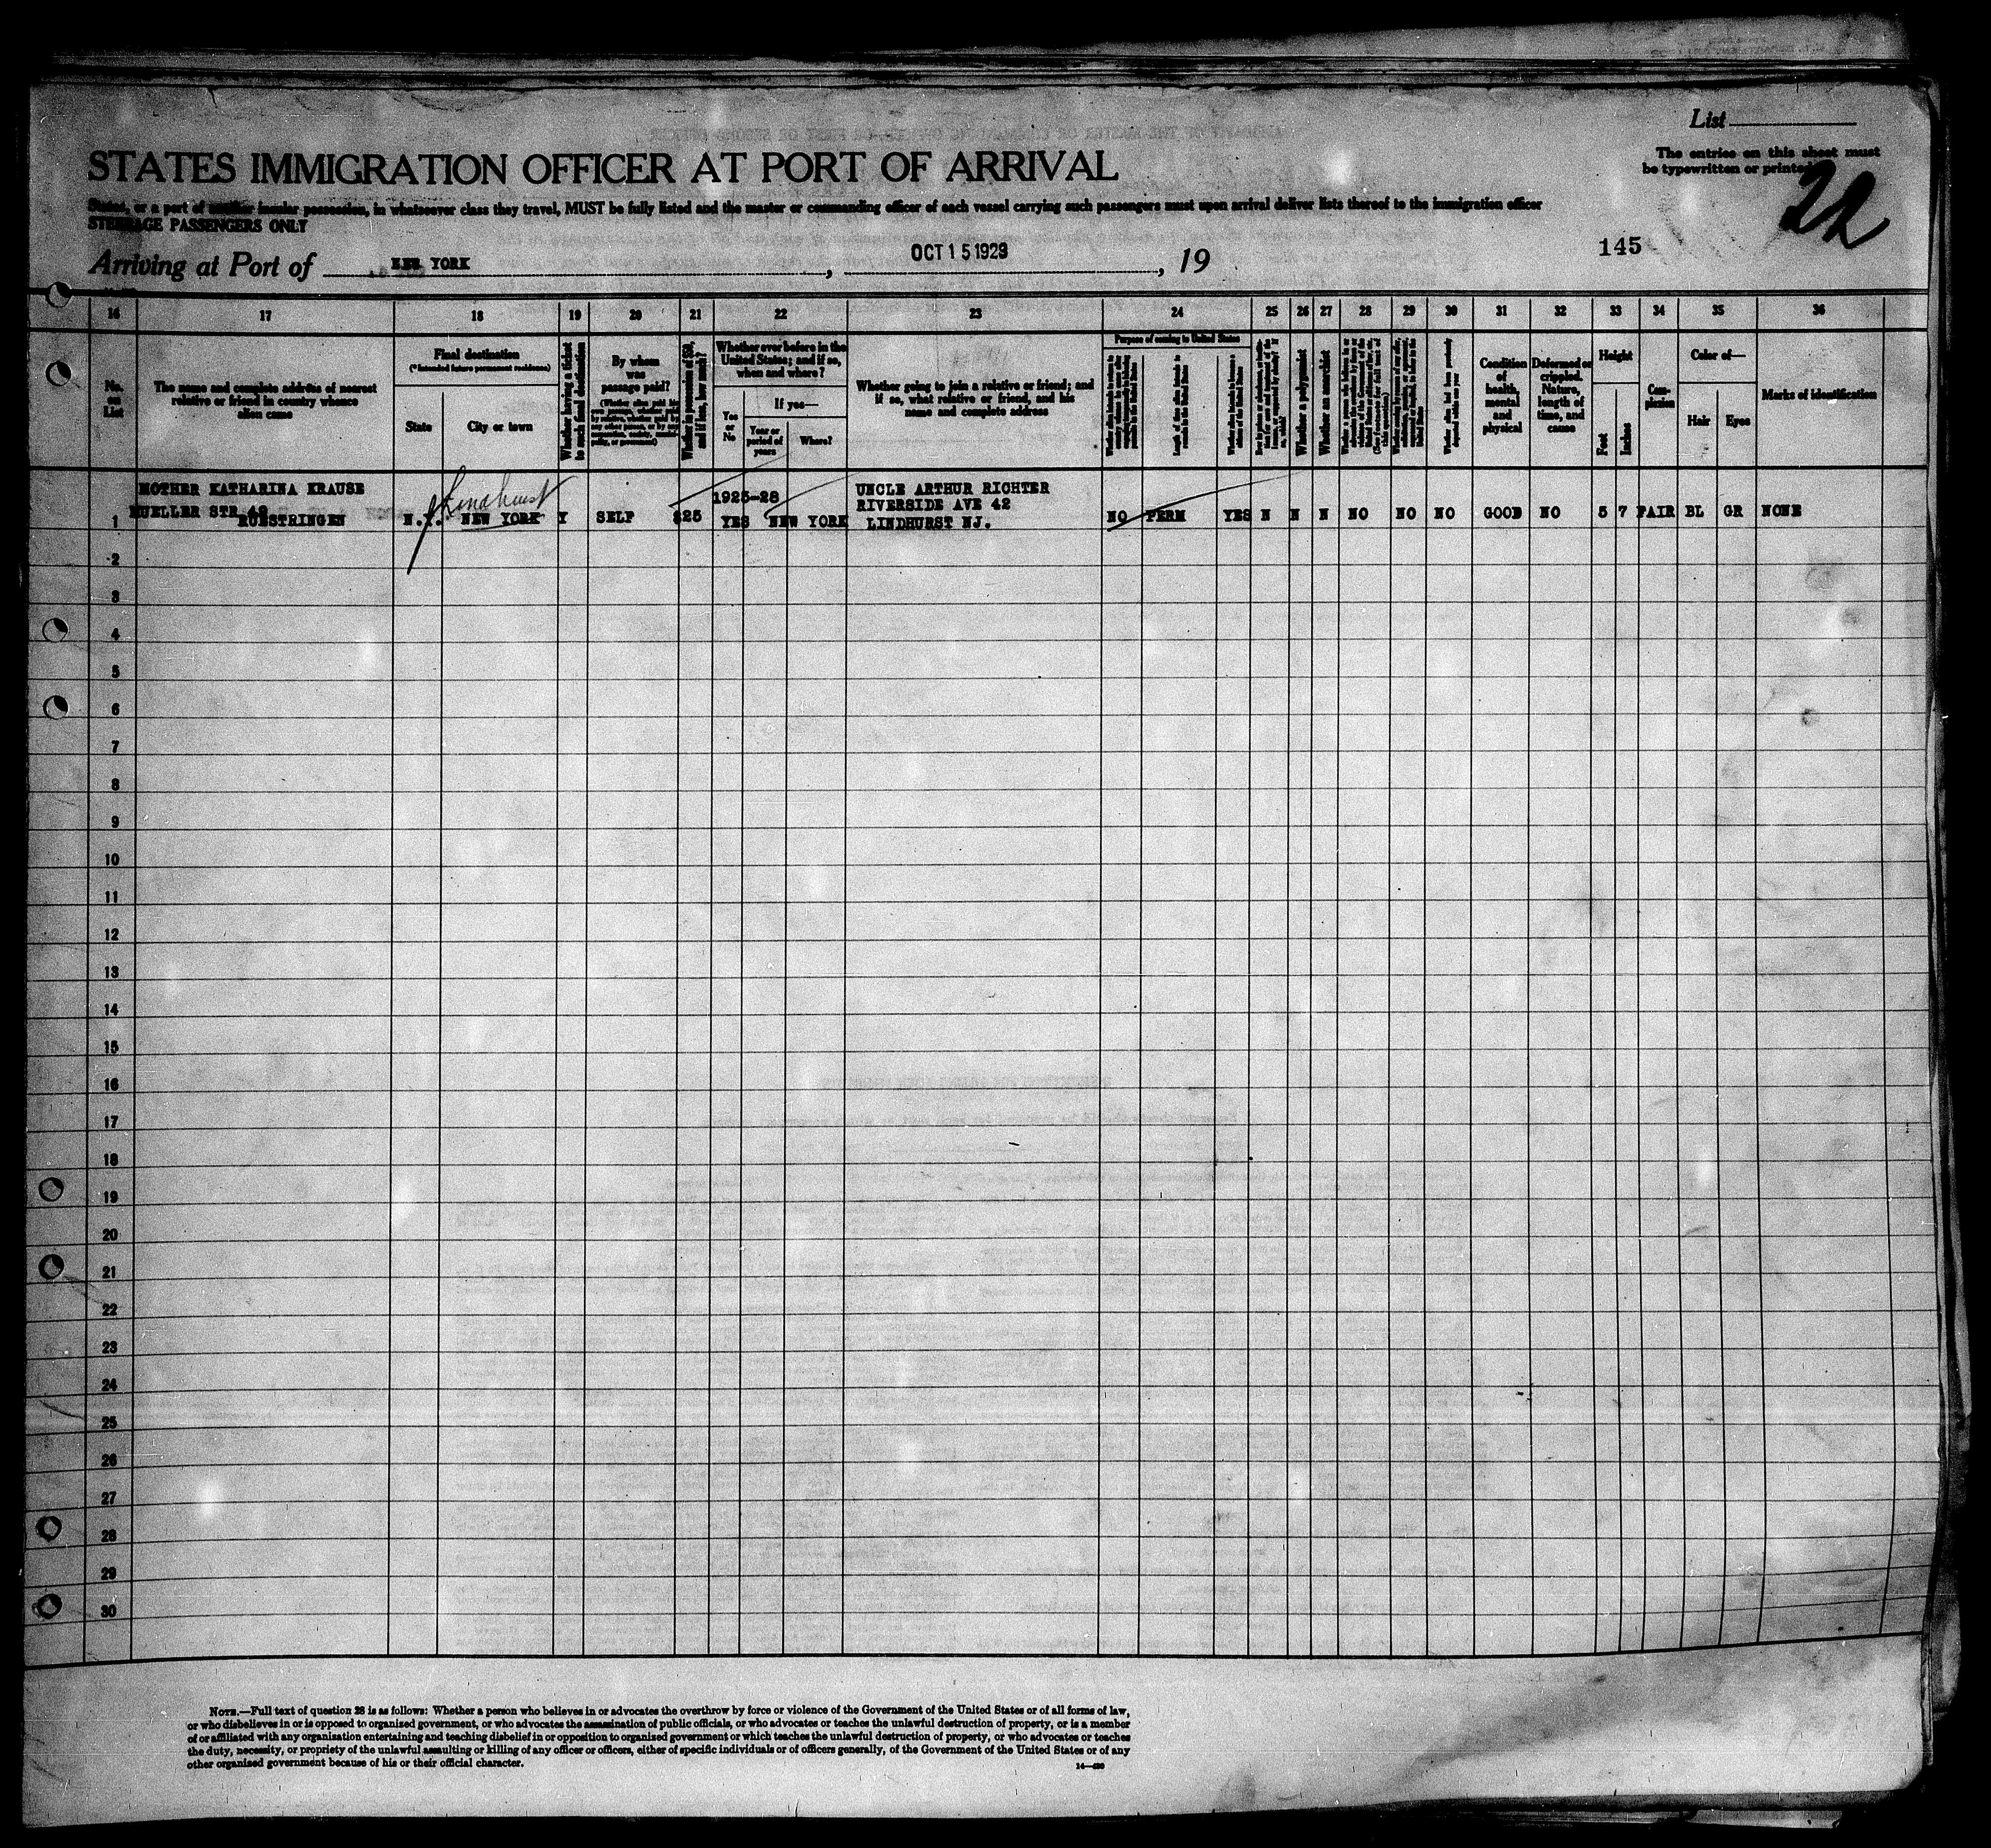 List
STATES IMMIGRATION OFFICER AT PORT OF ARRIVAL
The entries on this sheet must
be typewritten or printed
22
States, or a part of another insular possession, in whatsoever class they travel, MUST be fully listed and the master or commanding officer of each vessel carrying such passengers must upon arrival deliver lists thereof to the immigration officer
STEERAGE PASSENGERS ONLY
145
Arriving at Port of NEW YORK , OCT 15 1929 , 19
16 17 18 19 20 21 22 23 24 25 26 27 28 29 30 31 32 33 34 35 36
No. on List
The name and complete address of nearest relative or friend in country whence alien came
Final destination
(*Intended future permanent residence)
State
City or town
Whether having a ticket to such final destination
By whom was passage paid?
(Whether alien paid his own passage, whether paid by relative, whether paid by any other person, or by any corporation, society, municipality, or government)
Whether in possession of $50, and if less, how much?
Whether ever before in the United States; and if so, when and where?
Yes or No
If yes—
Year or period of years
Where?
Whether going to join a relative or friend; and if so, what relative or friend, and his name and complete address
Purpose of coming to United States
Length of time alien intends to remain in the United States
Whether alien intends to become a citizen of the United States
Whether a polygamist
Whether an anarchist
Condition of health, mental and physical
Deformed or crippled. Nature, length of time, and cause
Height
Feet
Inches
Complexion
Color of—
Hair
Eyes
Marks of identification
MOTHER KATHARINA KRAUSE
MUELLER STR 42
RUESTRINGEN
Lindhurst
1 N.Y. NEW YORK Y SELF $25 YES 1925-28 NEW YORK
UNCLE ARTHUR RICHTER
RIVERSIDE AVE 42
LINDHURST NJ.
NO PERM YES N N N NO NO NO GOOD NO 5 7 FAIR BL GR NONE
2
3
4
5
6
7
8
9
10
11
12
13
14
15
16
17
18
19
20
21
22
23
24
25
26
27
28
29
30
NOTE.—Full text of question 28 is as follows: Whether a person who believes in or advocates the overthrow by force or violence of the Government of the United States or of all forms of law,
or who disbelieves in or is opposed to organized government, or who advocates the assassination of public officials, or who advocates or teaches the unlawful destruction of property, or is a member
of or affiliated with any organization entertaining and teaching disbelief in or opposition to organized government or which teaches the unlawful destruction of property, or who advocates or teaches
the duty, necessity, or propriety of the unlawful assaulting or killing of any officer or officers, either of specific individuals or of officers generally, of the Government of the United States or of any
other organized government because of his or their official character.
14—430